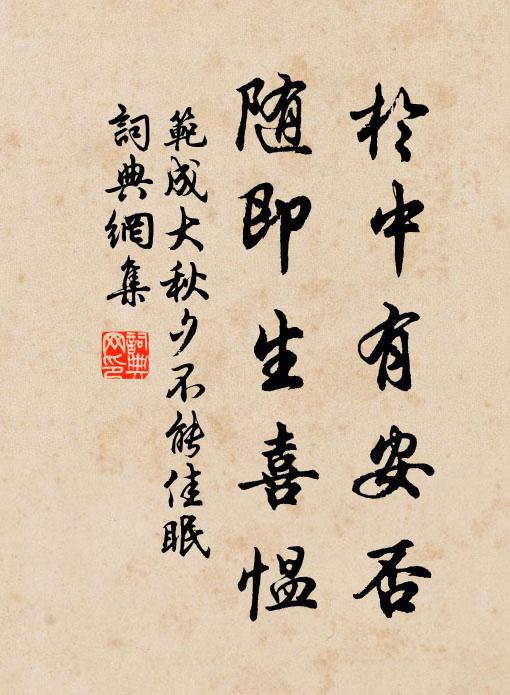 於中有安否
随即生喜愠
範成大秋夕不能佳眠
詞典網集
詞典
网印